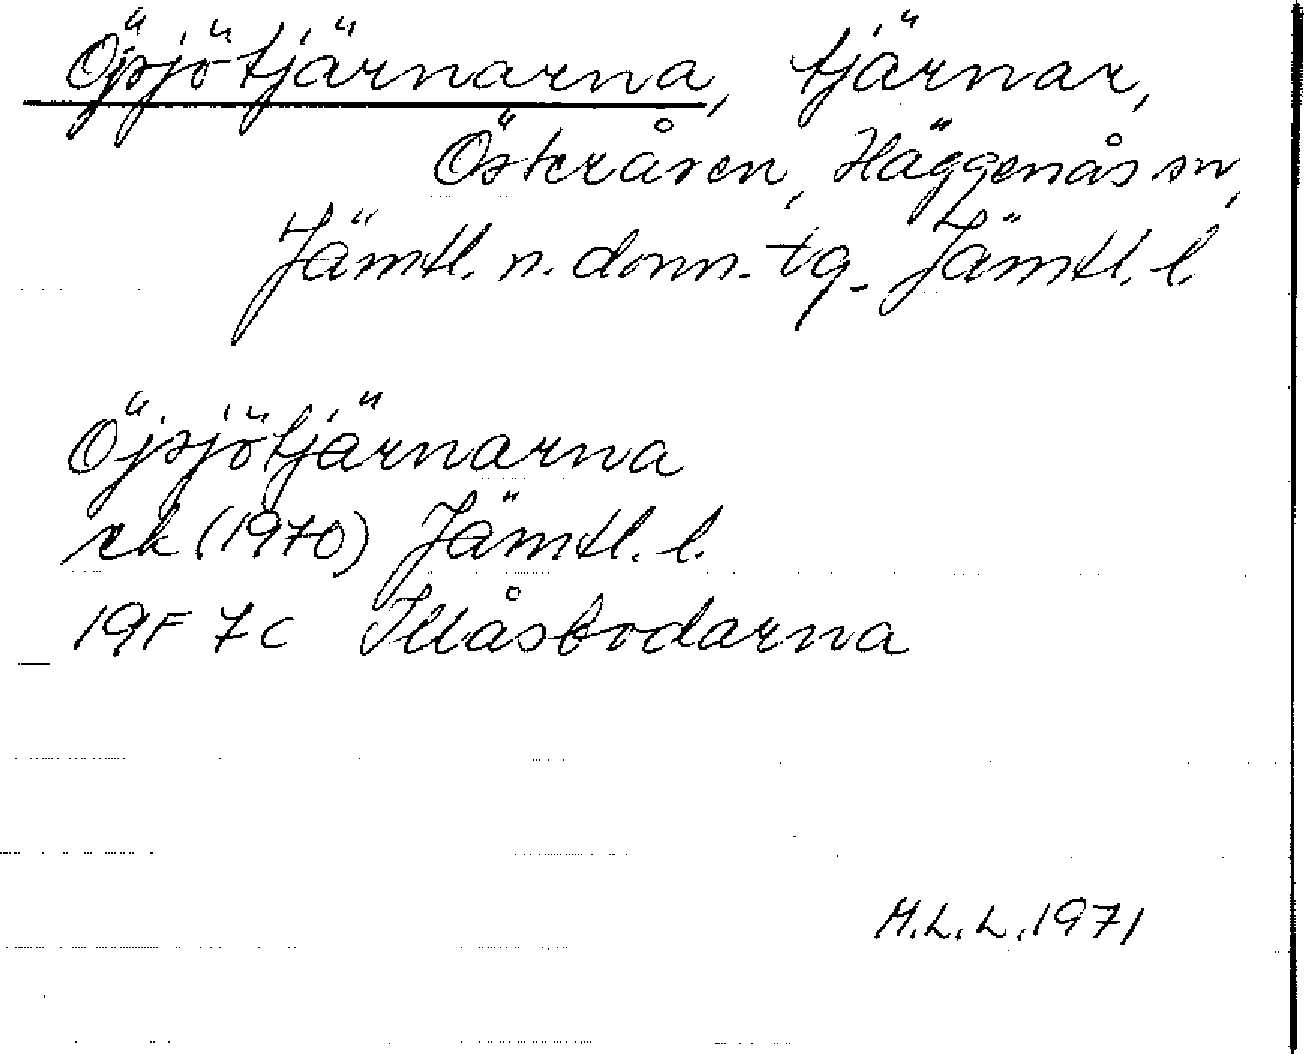 Öjsjötjärnarna, tjärnar,
Österåsen, Häggenås sn,
Jämtl. n. dom. tg. Jämtl. l.
Öjsjötjärnarna
rk (1970) Jämtl. l.
19F 7c Illåsbodarna
M.L.L. 1971